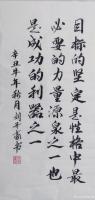 目标的坚定是性格中最
必要的力量源泉之一也
是成功的利器之一
辛丑牛年秋月刘